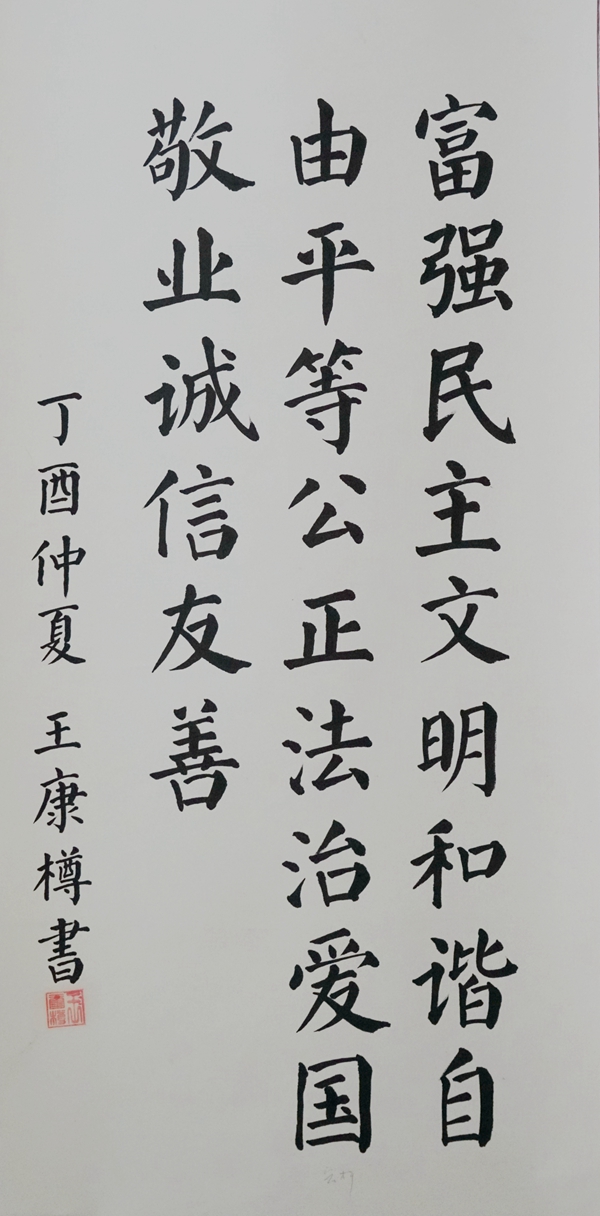 富强民主文明和谐自
由平等公正法治爱国
敬业诚信友善
丁酉仲夏 王康樽書